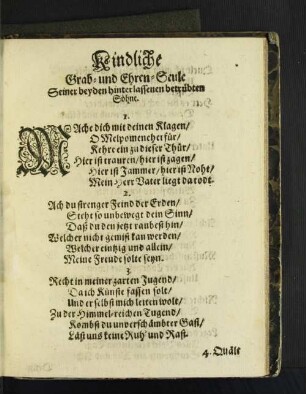 Kindliche
Grab- und Ehren-Seule
Seiner beyden hinterlassenen betrübten
Söhne.
1.
MAche dich mit deinen Klagen/
O Melpomene herfür/
Kehre ein zu dieser Thür/
Hier ist trauren/ hier ist zagen/
Hier ist Jammer/ hier ist Noht/
Mein Herr Vater liegt da todt.
2.
Ach du strenger Feind der Erden/
Steht so unbewegt dein Sinn/
Daß du den jetzt raubest hin/
Welcher nicht gemißt kan werden/
Welcher eintzig und allein/
Meine Freude solte seyn.
3.
Recht in meiner zarten Jugend/
Da ich Künste fassen solt/
Und er selbst mich leiten wolt/
Zu der Himmel-reichen Tugend/
Kombst du unverschämbter Gast/
Läst uns keine Ruh' und Rast.
4. Quäle